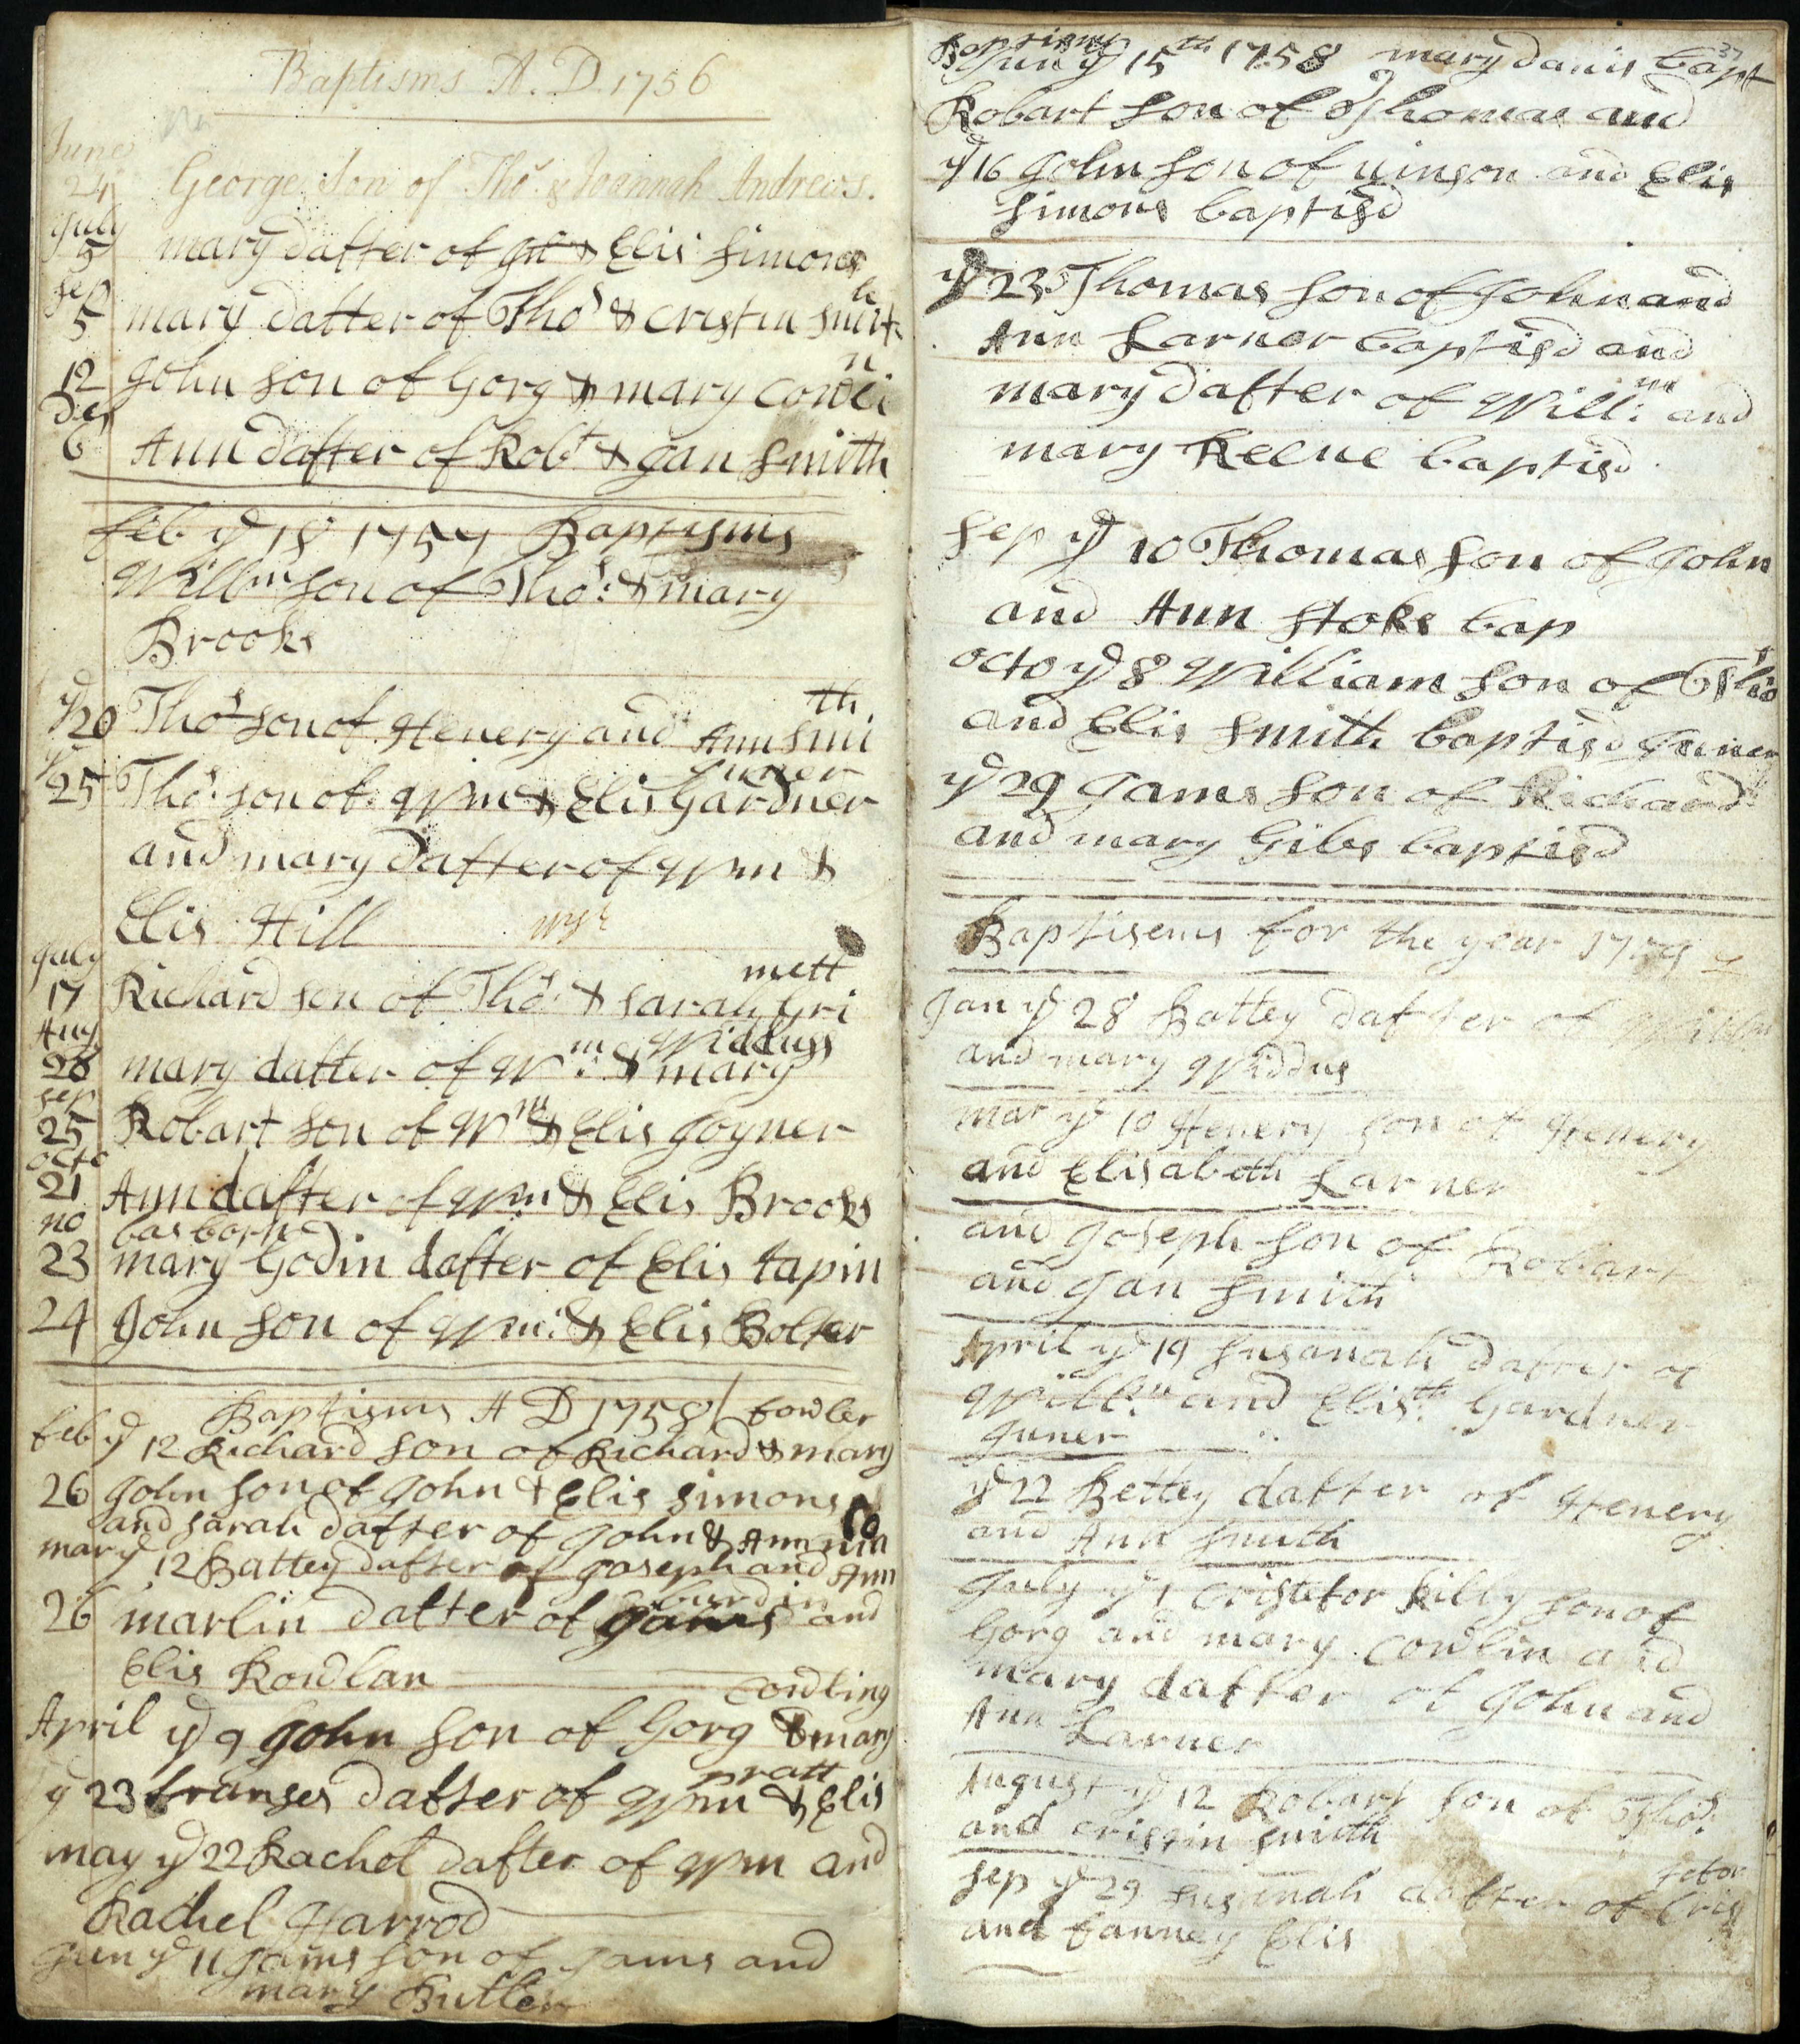 Baptisms A. D. 1756
June
24 George Son of Thos. & Joannah Andrews.
July
5 mary dafter of & Elis Simons
Sep
5 mary dafter of Thos & Cristin Smith
12 John Son of Gorg & mary Cowlin
Des
6 Ann dafter of Robt & Jan Smith
Feb ye 18 1757 Baptisms
Willm son of Thos: & mary
Brooks
ye 20 Thos son of Henery and Ann Smith
ye Juner
25 Thos: son of Wm & Elis Gardner
and mary dafter of Wm &
Elis Hill
July mett
17 Richard son of Thos: & Sarah Gri
Aug Widdus
28 mary dafter of Wm: & mary
Sep
25 Robart Son of Wm & Elis Joyner
octo
21 Ann dafter of Wm: & Elis Brooks
no bas born
23 mary Godin dafter of Elis tapin
24 John Son of Wm: & Elis Bolter
Baptisms A D 1758 / fowler
Feb ye 12 Richard Son of Richard & mary
26 John Son of John & Elis Simons
and Sarah dafter of John & Ann
mar ye 12 Battey dafter of Joseph and Ann
burdin
26 marlin dafter of Jams and
Elis Rowlan
Cowling
April ye 9 John Son of Gorg & mary
pratt
ye 23 franses dafter of Wm & Elis
may ye 22 Rachel dafter of Wm and
Rachel Harrod
Jun ye 11 Jams Son of Jams and
mary Butler
37
Baptisms
Jun ye 15th 1758 mary davis bapt
Robart Son of Thomas and
ye 16 John Son of vinson and Elis
Simons baptisd
ye 23 Thomas Son of John and
Ann Larner baptisd and
mary dafter of Willm: and
mary Keene baptisd
Sep ye 10 Thomas Son of John
and Ann Stoks bap
octo ye 8 William Son of Thos
and Elis Smith baptisd Juner
ye 29 Jams Son of Richard
and mary Gibs baptisd
Baptisems for the year 1759
Jan ye 28 Battey dafter of Willm
and mary Widdus
mar ye 10 Henery Son of Henery
and Elisabeth Larner
and Joseph Son of Robart
and Jan Smith
April ye 19 Susanah dafter of
Willm: and Elisth: Gardner
Juner
ye 22 Bettey dafter of Henery
and Ann Smith
July ye 1 Cristefor Killy Son of
Gorg and mary Cowlin and
mary dafter of John and
Ann Larner
August ye 12 Robart Son of Thos:
and Cristin Smith
fefor
Sep ye 29 Susanah dafter of Cris
and fanney Elis